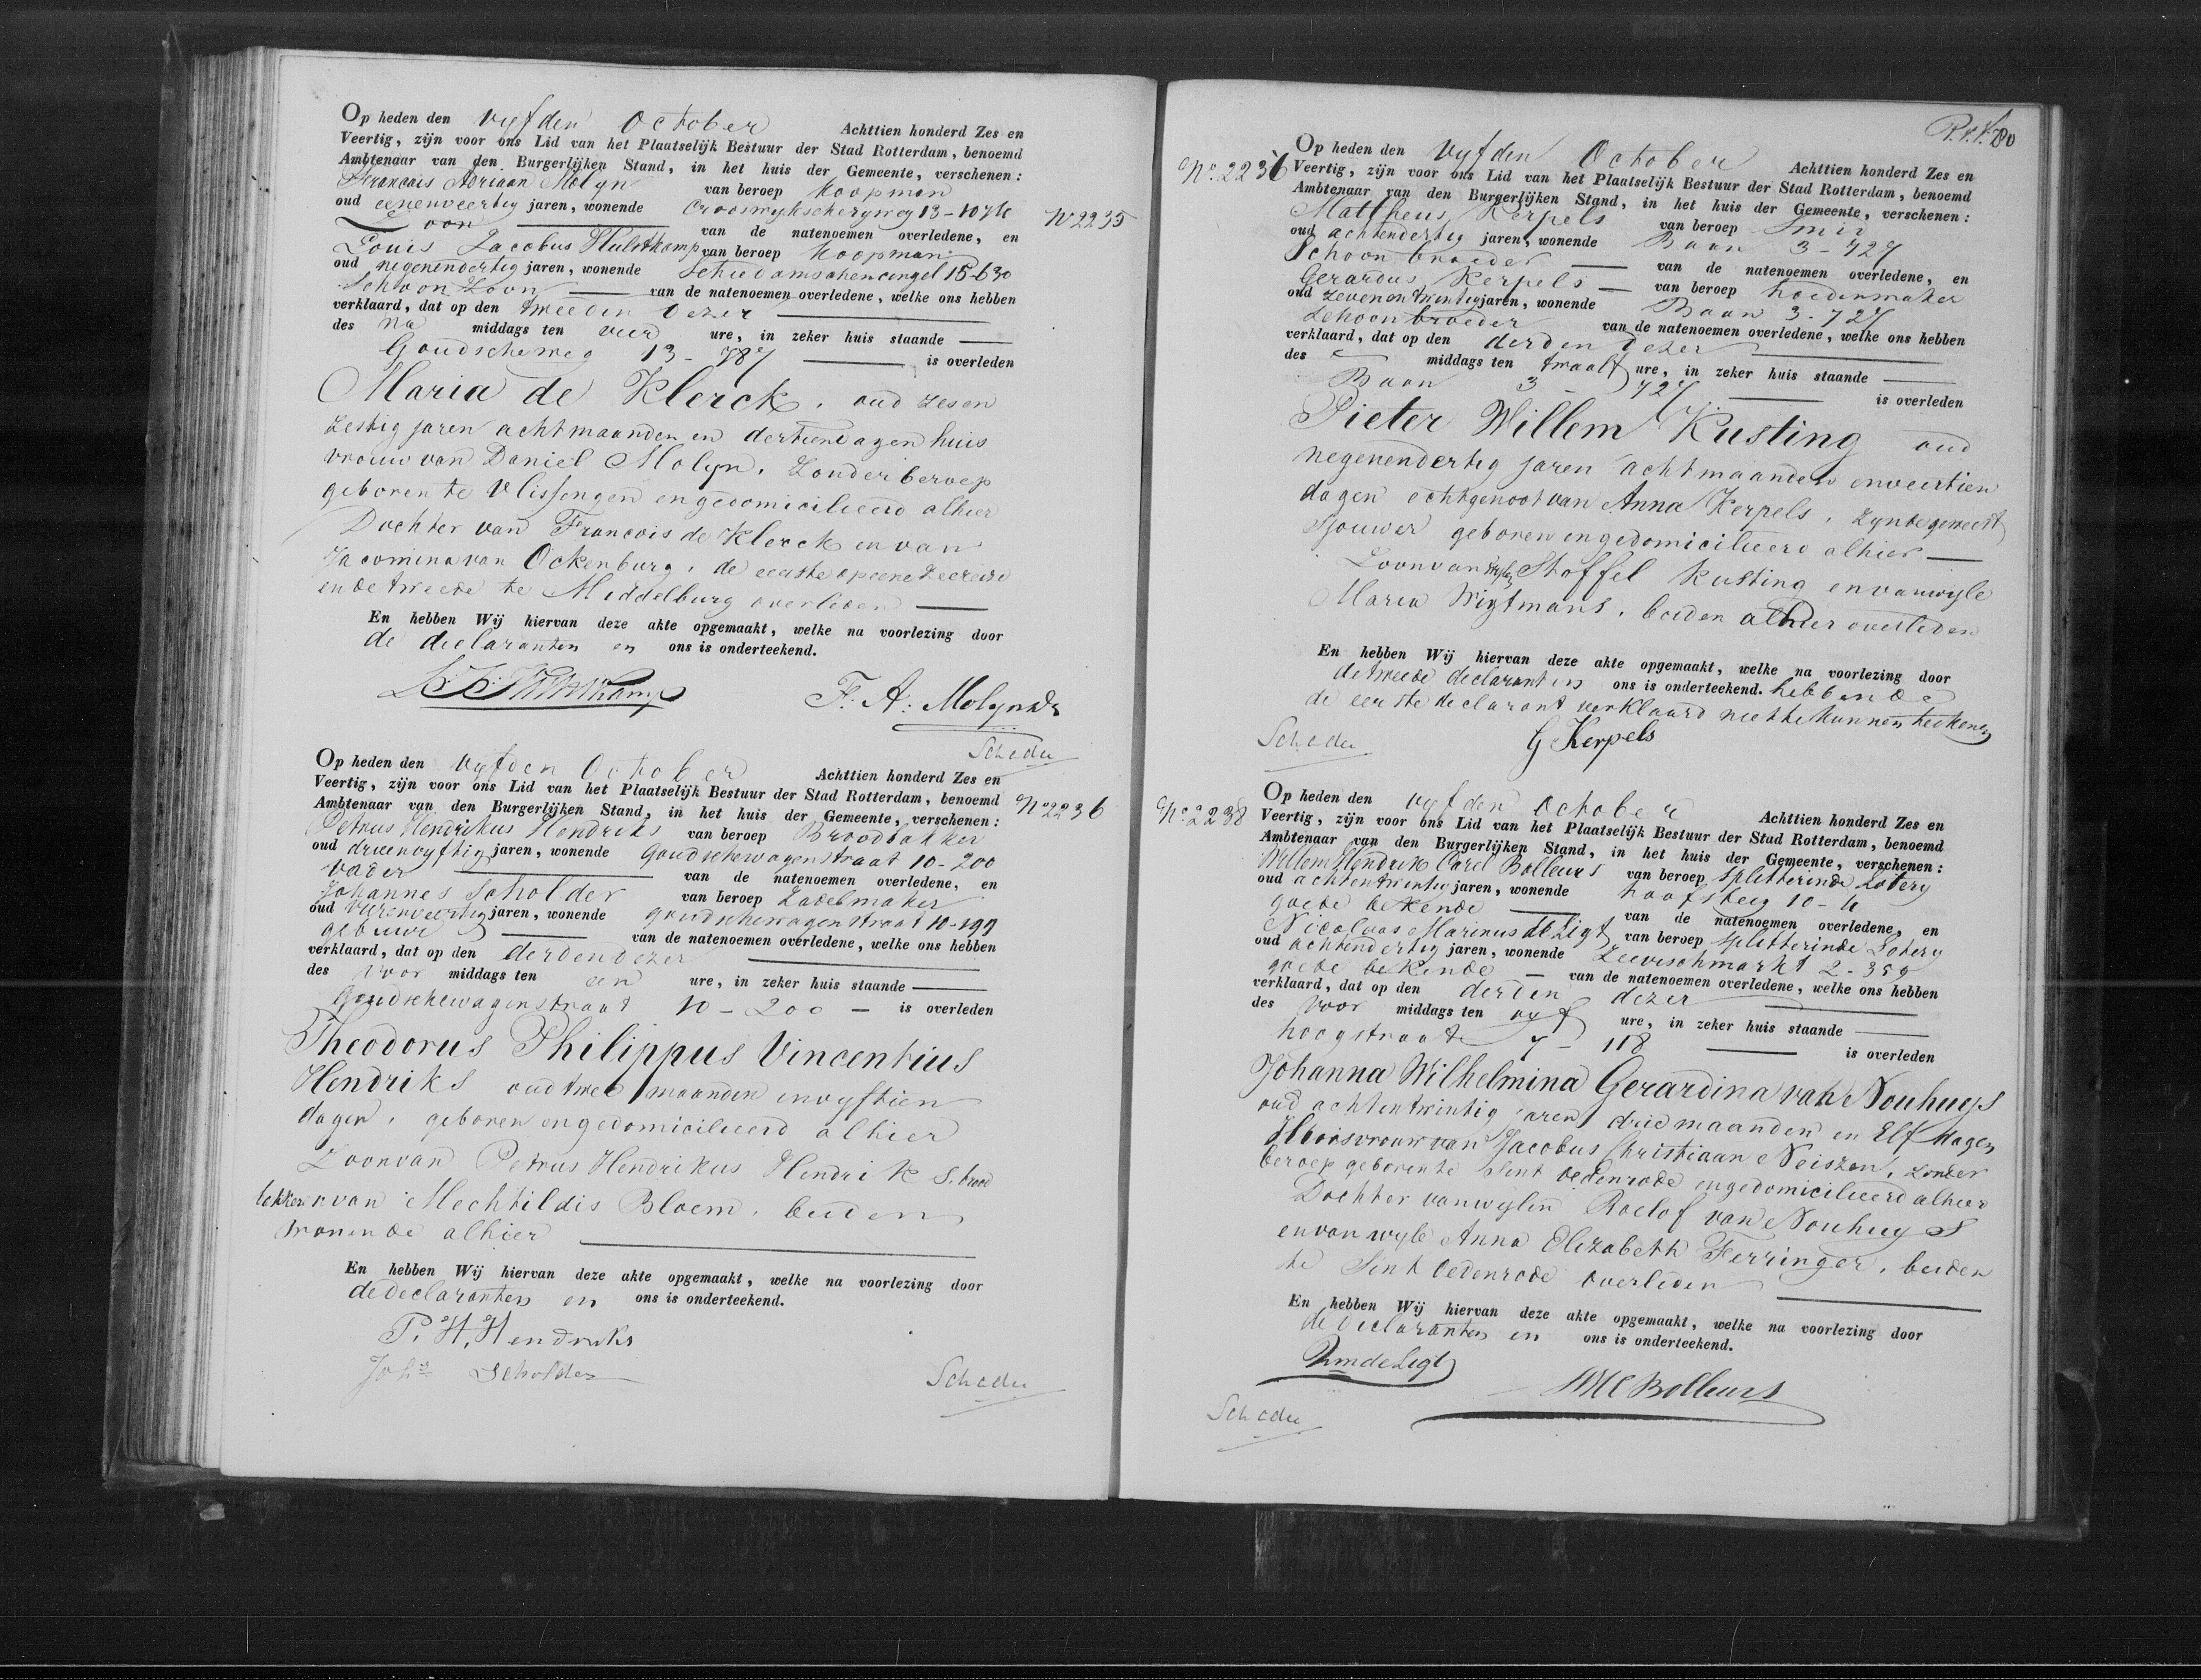 Op heden den vyfden October Achttien honderd Zes en
Veertig, zijn voor ons Lid van het Plaatselijk Bestuur der Stad Rotterdam, benoemd
Ambtenaar van den Burgerlijken Stand, in het huis der Gemeente, verschenen:
Francois Adriaan Molyn van beroep Koopman
oud eenenveertig jaren, wonende Crooswykscheryweg 13-
Zoon van de natenoemen overledene, en
Louis Jacobus Hulstkamp van beroep Koopman
oud negenendertig jaren, wonende Schiedamschencingel 15-630
Schoon Zoon van de natenoemen overledene, welke ons hebben
verklaard, dat op den tweeden dezer
des na middags ten vier ure, in zeker huis staande
Goudscheweg 13-787 is overleden
Maria de Klerck, oud zesen
zestig jaren acht maanden en dertien dagen huis
vrouw van Daniel Molyn, Zonder beroep
geboren te Vlissengen en gedomicilieerd alhier
Dochter van Francois de Klerck en van
Jacomina van Ockenburg, de eerste op eene Zeereise
en de tweede te Middelburg overleden
En hebben Wij hiervan deze akte opgemaakt, welke na voorlezing door
de declaranten en ons is onderteekend.
L. J. Hulstkamp F. A. Molyn
Schadee
No 2235
Op heden den vyfden October Achttien honderd Zes en
Veertig, zijn voor ons Lid van het Plaatselijk Bestuur der Stad Rotterdam, benoemd
Ambtenaar van den Burgerlijken Stand, in het huis der Gemeente, verschenen:
Petrus Hendrikus Hendriks van beroep Broodbakker
oud drieenvyftig jaren, wonende Goudschewagenstraat 10-200
vader van de natenoemen overledene, en
Johannes Scholder van beroep Zadelmaker
oud vierenveertig jaren, wonende goudschewagenstraat 10-199
gebuur van de natenoemen overledene, welke ons hebben
verklaard, dat op den derden dezer
des voor middags ten een ure, in zeker huis staande
Goudschewagenstraat 10-200 - is overleden
Theodorus Philippus Vincentius
Hendriks oud twee maanden en vyftien
dagen, geboren en gedomicilieerd alhier
Zoon van Petrus Hendrikus Hendriks, brood
bakker en van Mechtildis Bloem, beiden
wonende alhier
En hebben Wij hiervan deze akte opgemaakt, welke na voorlezing door
de declaranten en ons is onderteekend.
P. H. Hendriks
Johs Scholder Schadee
No 2236
R.v.V. 80
No. 2236
Op heden den vyfden October Achttien honderd Zes en
Veertig, zijn voor ons Lid van het Plaatselijk Bestuur der Stad Rotterdam, benoemd
Ambtenaar van den Burgerlijken Stand, in het huis der Gemeente, verschenen:
Mattheus Kerpels van beroep Smid
oud achtendertig jaren, wonende Baan 3-727
Schoon broeder van de natenoemen overledene, en
Gerardus Kerpels van beroep hoedenmaker
oud zevenentwintig jaren, wonende Baan 3-727
Schoon broeder van de natenoemen overledene, welke ons hebben
verklaard, dat op den derden dezer
des middags ten twaalf ure, in zeker huis staande
Baan 3-727 is overleden
Pieter Willem Kusting oud
negenendertig jaren acht maanden en veertien
dagen echtgenoot van Anna Kerpels, zynde geweest
Sjouwer geboren en gedomicilieerd alhier
Zoon van wyle Stoffel Kusting en van wyle
Maria Wigtmans, beiden alhier overleden
En hebben Wij hiervan deze akte opgemaakt, welke na voorlezing door
de tweede declarant en ons is onderteekend. hebbende
de eerste declarant verklaard niet te kunnen teekenen
Schadee G Kerpels
No. 2238
Op heden den vyfden October Achttien honderd Zes en
Veertig, zijn voor ons Lid van het Plaatselijk Bestuur der Stad Rotterdam, benoemd
Ambtenaar van den Burgerlijken Stand, in het huis der Gemeente, verschenen:
Willem Hendrik Carel Bolleurs van beroep splitterinde Lotery
oud achtentwintig jaren, wonende hoofsteeg 10-4
goede bekende van de natenoemen overledene, en
Nicolaas Marinus de Ligt van beroep splitterinde Lotery
oud achtendertig jaren, wonende Zeevischmarkt 2-359
goede bekende - van de natenoemen overledene, welke ons hebben
verklaard, dat op den derden dezer
des voor middags ten vyf ure, in zeker huis staande
hoogstraat 7-118 is overleden
Johanna Wilhelmina Gerardina van Nouhuys
oud achtentwintig jaren drie maanden en Elf dagen
Huisvrouw van Jacobus Christiaan Neiszen, zonder
beroep geborente Sint oedenrode en gedomicilieerd alhier
Dochter van wylen Roelof van Nouhuys
en van wyle Anna Elizabeth Ferringer, beiden
te Sint Oedenrode overleden
En hebben Wij hiervan deze akte opgemaakt, welke na voorlezing door
de declaranten en ons is onderteekend.
NmdeLigt
WHC Bolleurs
Schadee